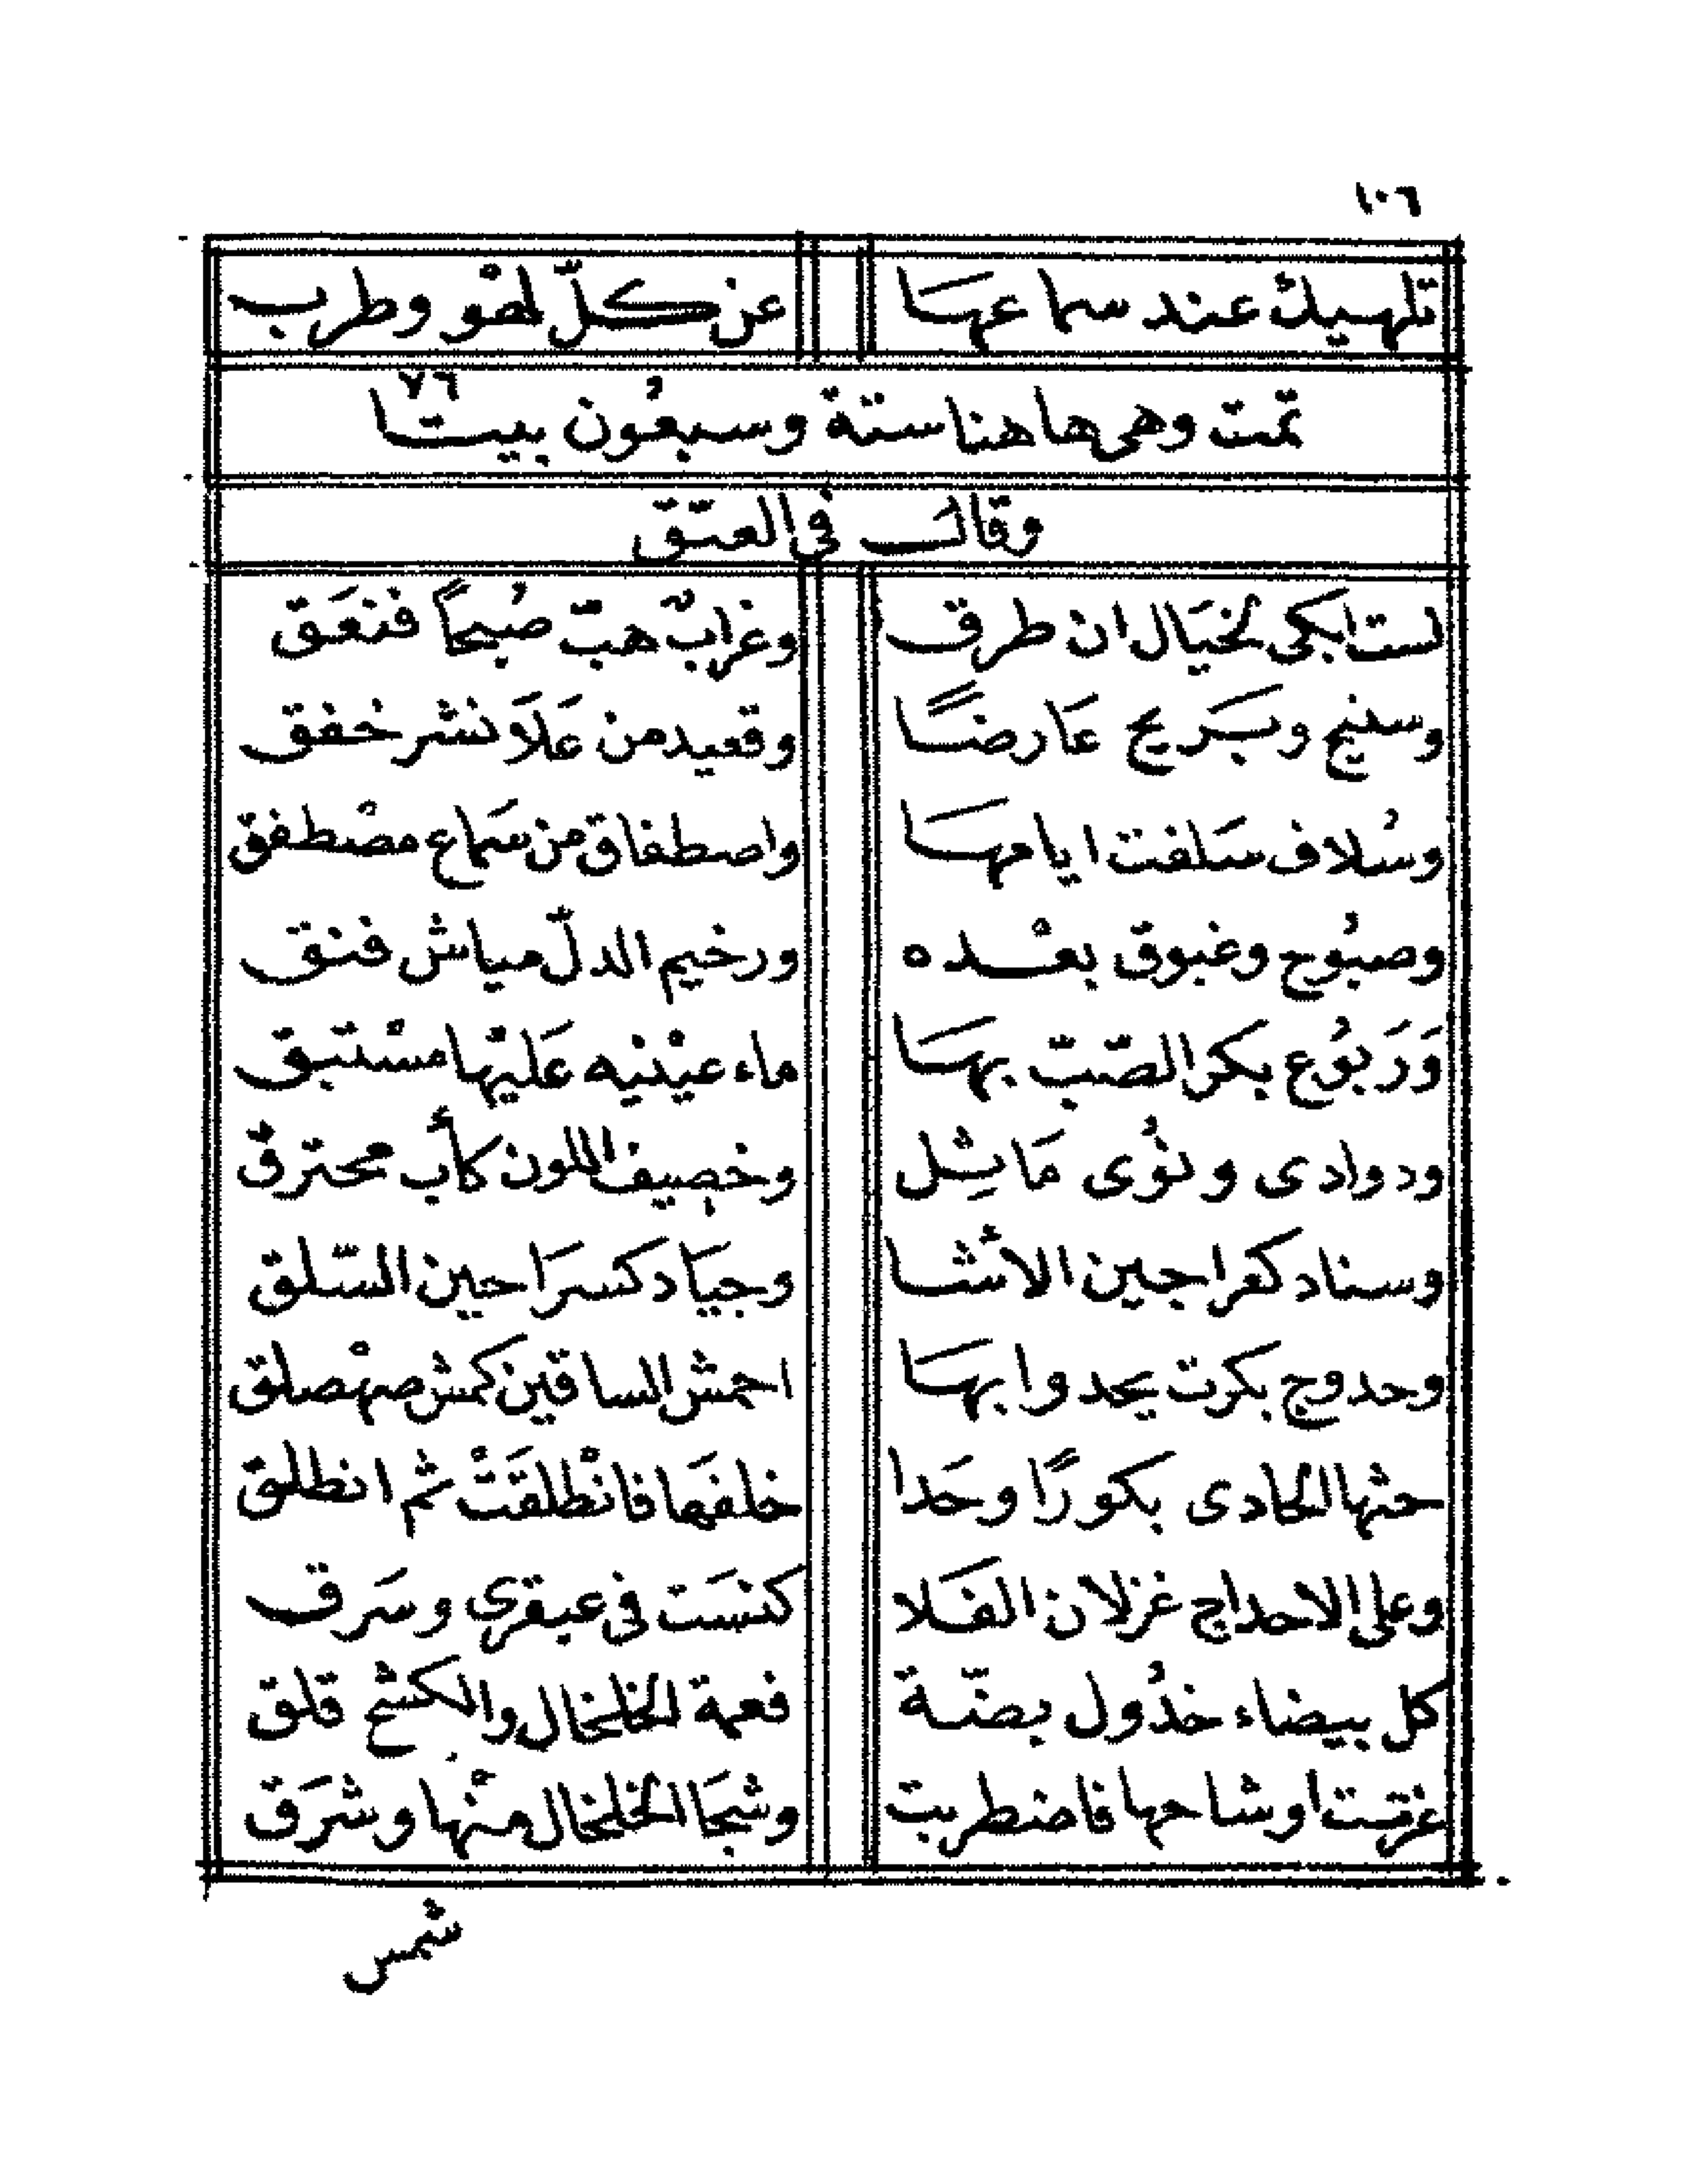 ١٠٦
تلهيك عند سماعهَا عن كلّ لهْو وطرب
تمّت وهى هاهنا ستة وسبعُون بيتا ٧٦
وقالَ في العتق
لست ابكى لخيَال ان طرق وغرابٌ هبّ صُبحاً فنعَق
وسنيح وبَريح عَارضًا وقعيد من عَلَا نشر خفق
وسُلاف سَلفت ايامهَا واصطفاق من سَماع مصْطفق
وصبُوح وغبوق بعْده ورخيم الدلّ مياش فنق
وَرَبوُع بكر الصّبّ بهَا ماء عيْنيه عَليْها مسْتبق
ودوادى ونُؤى مَاثِل وخصيف اللون كأب محترق
وسناد كعراجين الأشا وجيَاد كسرَاحين السّلق
وحدوج بكرت يحدوا بهَا احمش الساقين كمش صهْصلق
حثها الحادى بكورًا وحَدا خلفهَا فانْطلقَتْ ثم انطلق
وعلى الاحداج غزلان الفَلا كنسَت في عبقرى وسَرق
كل بيضاء خذُول بضّة فعمة الخلخال والكشح قلق
غرثت اوشاحها فاضطربت وشجَا الخلخال منْها وشرَق
شمس